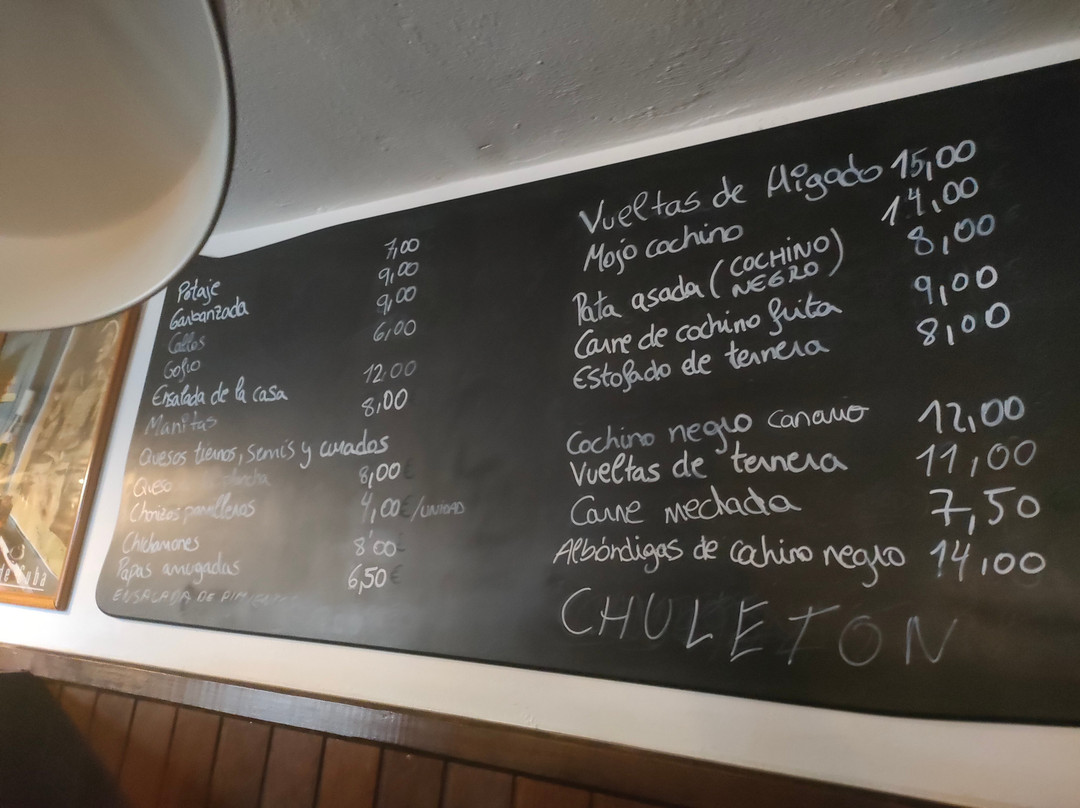 Potaje 7,00
Garbanzada 9,00
Callos 9,00
Gofio 6,00
Ensalada de la casa 12,00
Manitas 8,00
Quesos tiernos, semis y curados
Queso 8,00€
Chorizos parrilleros 4,00€/UNIDAD
Chicharrones 8'00
Papas arrugadas 6,50€
ENSALADA DE
Vueltas de Higado 15,00
Mojo cochino 14,00
Pata asada (COCHINO NEGRO) 8,00
Carne de cochino frita 9,00
Estofado de ternera 8,00
Cochino negro canario 12,00
Vueltas de ternera 11,00
Carne mechada 7,50
Albóndigas de cochino negro 14,00
CHULETON